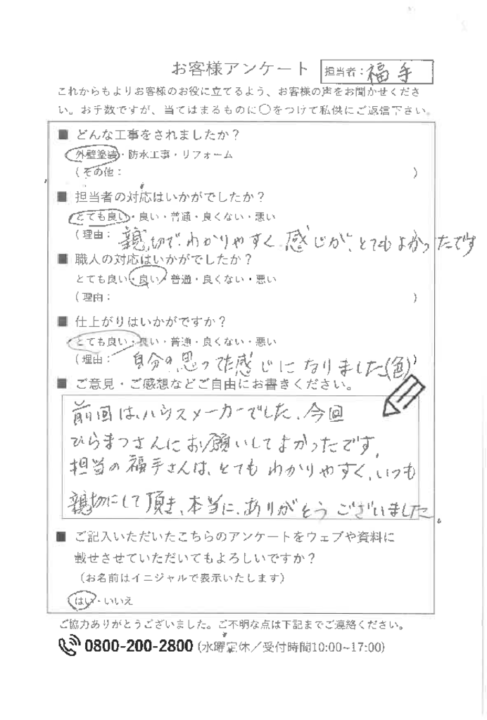 お客様アンケート 担当者：福手
これからもよりお客様のお役に立てるよう、お客様の声をお聞かせくださ
い。お手数ですが、当てはまるものに〇をつけて私供にご返信下さい。
■ どんな工事をされましたか？
外壁塗装・防水工事・リフォーム
（その他： ）
■ 担当者の対応はいかがでしたか？
とても良い・良い・普通・良くない・悪い
（理由： 親切で、わかりやすく、感じが、とてもよかったです
■ 職人の対応はいかがでしたか？
とても良い・良い・普通・良くない・悪い
（理由： ）
■ 仕上がりはいかがですか？
とても良い・良い・普通・良くない・悪い
（理由： 自分の思ってた感じになりました(色)
■ ご意見・ご感想などご自由にお書きください。
前回は、ハウスメーカーでした、今回
ひらまつさんにお願いしてよかったです。
担当の福手さんは、とてもわかりやすく、いつも
親切にして頂き、本当に、ありがとうございました。
■ ご記入いただいたこちらのアンケートをウェブや資料に
載せさせていただいてもよろしいですか？
（お名前はイニシャルで表示いたします）
はい・いいえ
ご協力ありがとうございました。ご不明な点は下記までご連絡ください。
0800-200-2800 (水曜定休／受付時間10:00~17:00)